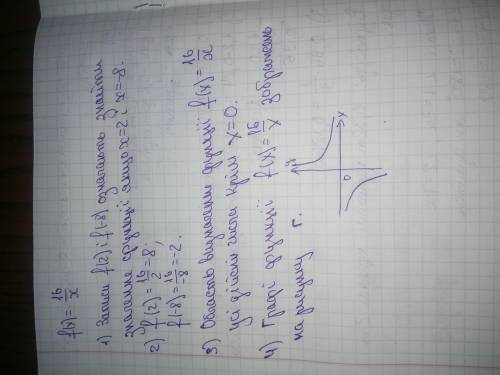 f(x) = 16/x
1) Записи f(2) і f(-8) означають знайти
значення функції якщо x=2 і x=-8.
2) f(2) = 16/2 = 8;
f(-8) = 16/-8 = -2.
3) Область визначення функції f(x) = 16/x
усі дійсні числа крім x=0.
4) Графі функції f(x) = 16/x зображень
на рисунку г.
y
0
x